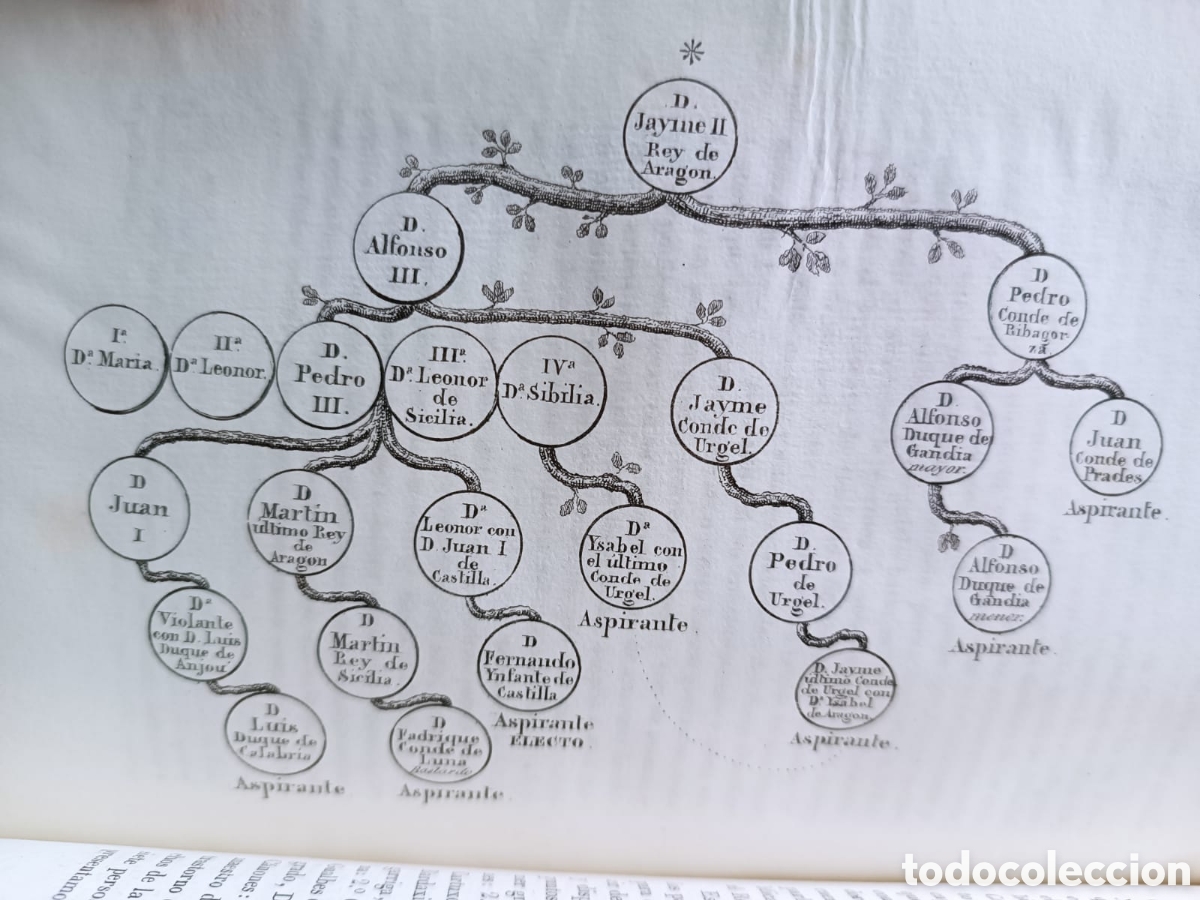 *
D.
Jayme II
Rey de
Aragon.
D.
Alfonso
III.
D
Pedro
Conde de
Ribagor-
za
Iª
Dª Maria.
IIª
Dª Leonor.
D.
Pedro
III.
IIIª.
Dª Leonor
de
Sicilia.
IVª
Dª Sibilia.
D.
Jayme
Conde de
Urgel.
D.
Alfonso
Duque de
Gandia
mayor.
D
Juan
Conde de
Prades
Aspirante.
D
Juan
I
D
Martin
ultimo Rey
de
Aragon
Dª
Leonor con
D. Juan I
de
Castilla.
Dª
Ysabel con
el último
Conde de
Urgel.
Aspirante.
D.
Pedro
de
Urgel.
D
Alfonso
Duque de
Gandia
menor.
Aspirante.
Dª
Violante
con D. Luis
Duque de
Anjou
D
Martin
Rey de
Sicilia.
D
Fernando
Ynfante de
Castilla
Aspirante
ELECTO.
D. Jayme
ultimo Conde
de Urgel con
Dª Ysabel
de Aragon.
Aspirante.
D
Luis
Duque de
Calabria
Aspirante
D
Fadrique
Conde de
Luna
Bastardo
Aspirante.
todocoleccion